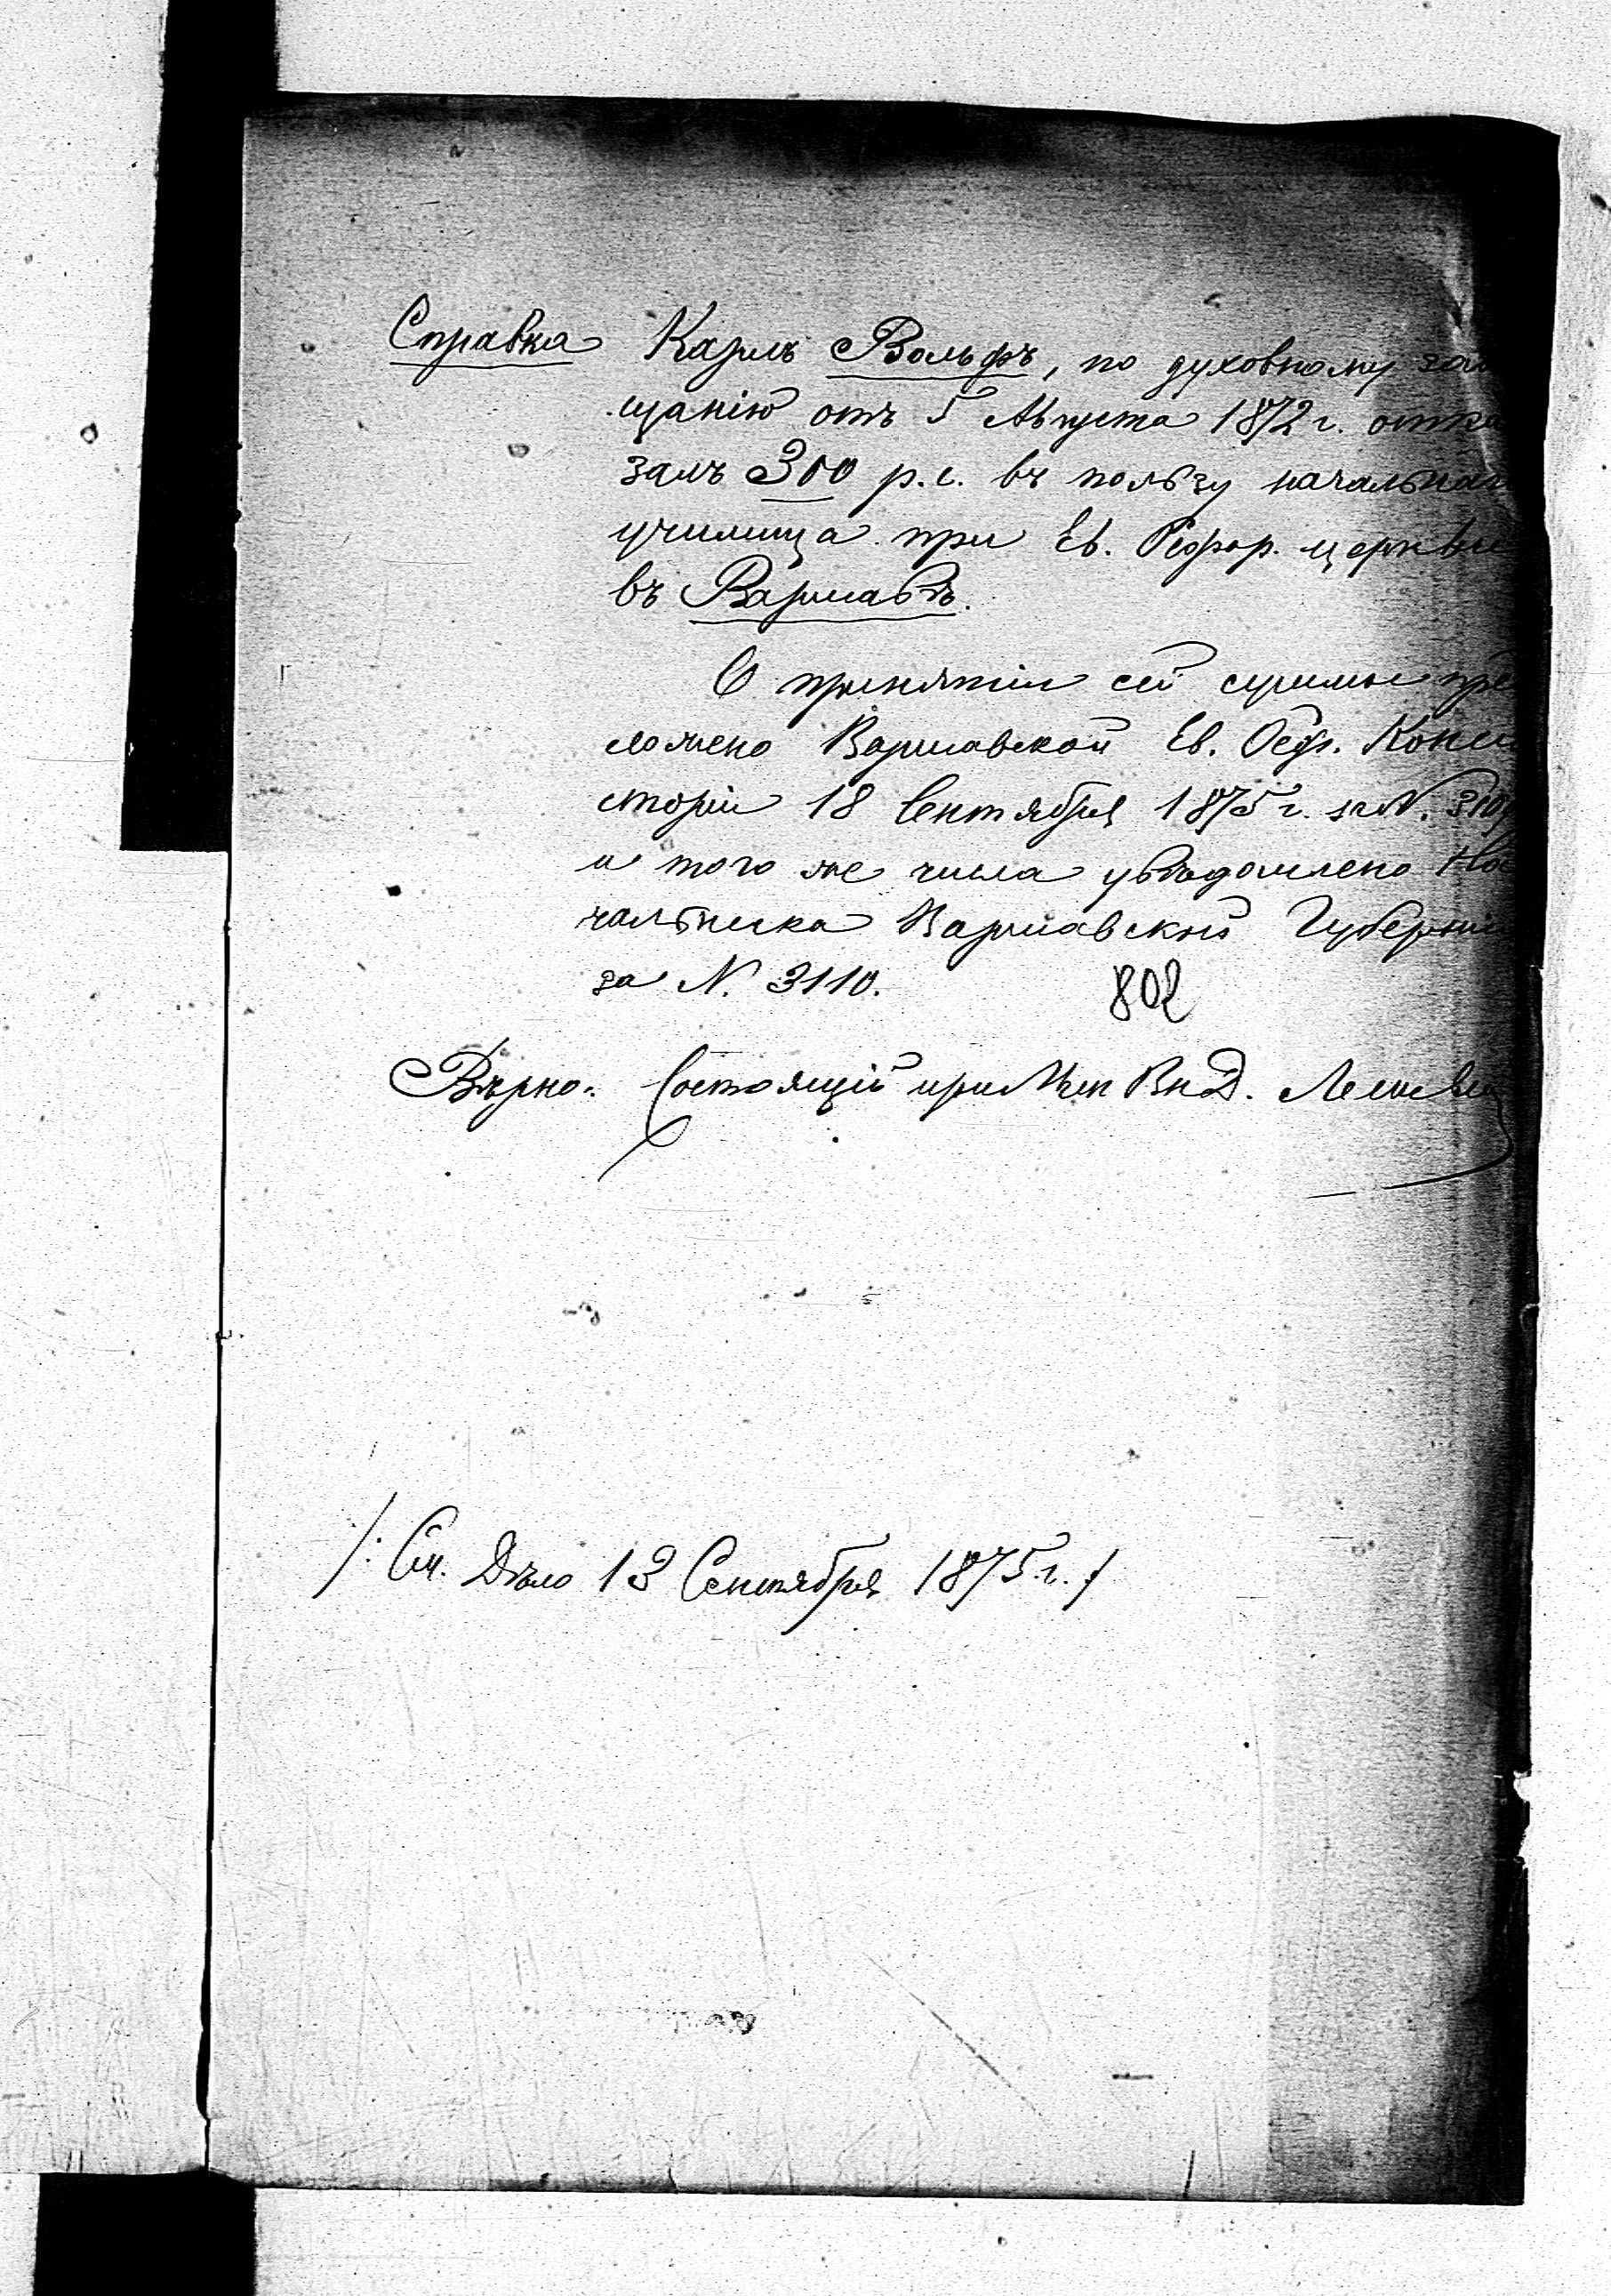 Справка Карлъ Вольфъ, по духовному завѣ
щанію отъ 5 Августа 1872 г. отка
залъ 300 р.с. въ пользу начальнаго
училища при Ев. Рефор. церкви
въ Варшавѣ.
О принятіи сей суммы пред
ложено Варшавской Ев. Реф. Конси
сторіи 18 Сентября 1875 г. за N. 3109
и того же числа увѣдомлено На
чальника Варшавской Губерніи
за N. 3110.
802
Вѣрно: Состоящій при Мин Вн Д.
/: См. Дѣло 13 Сентября 1875 г. :/